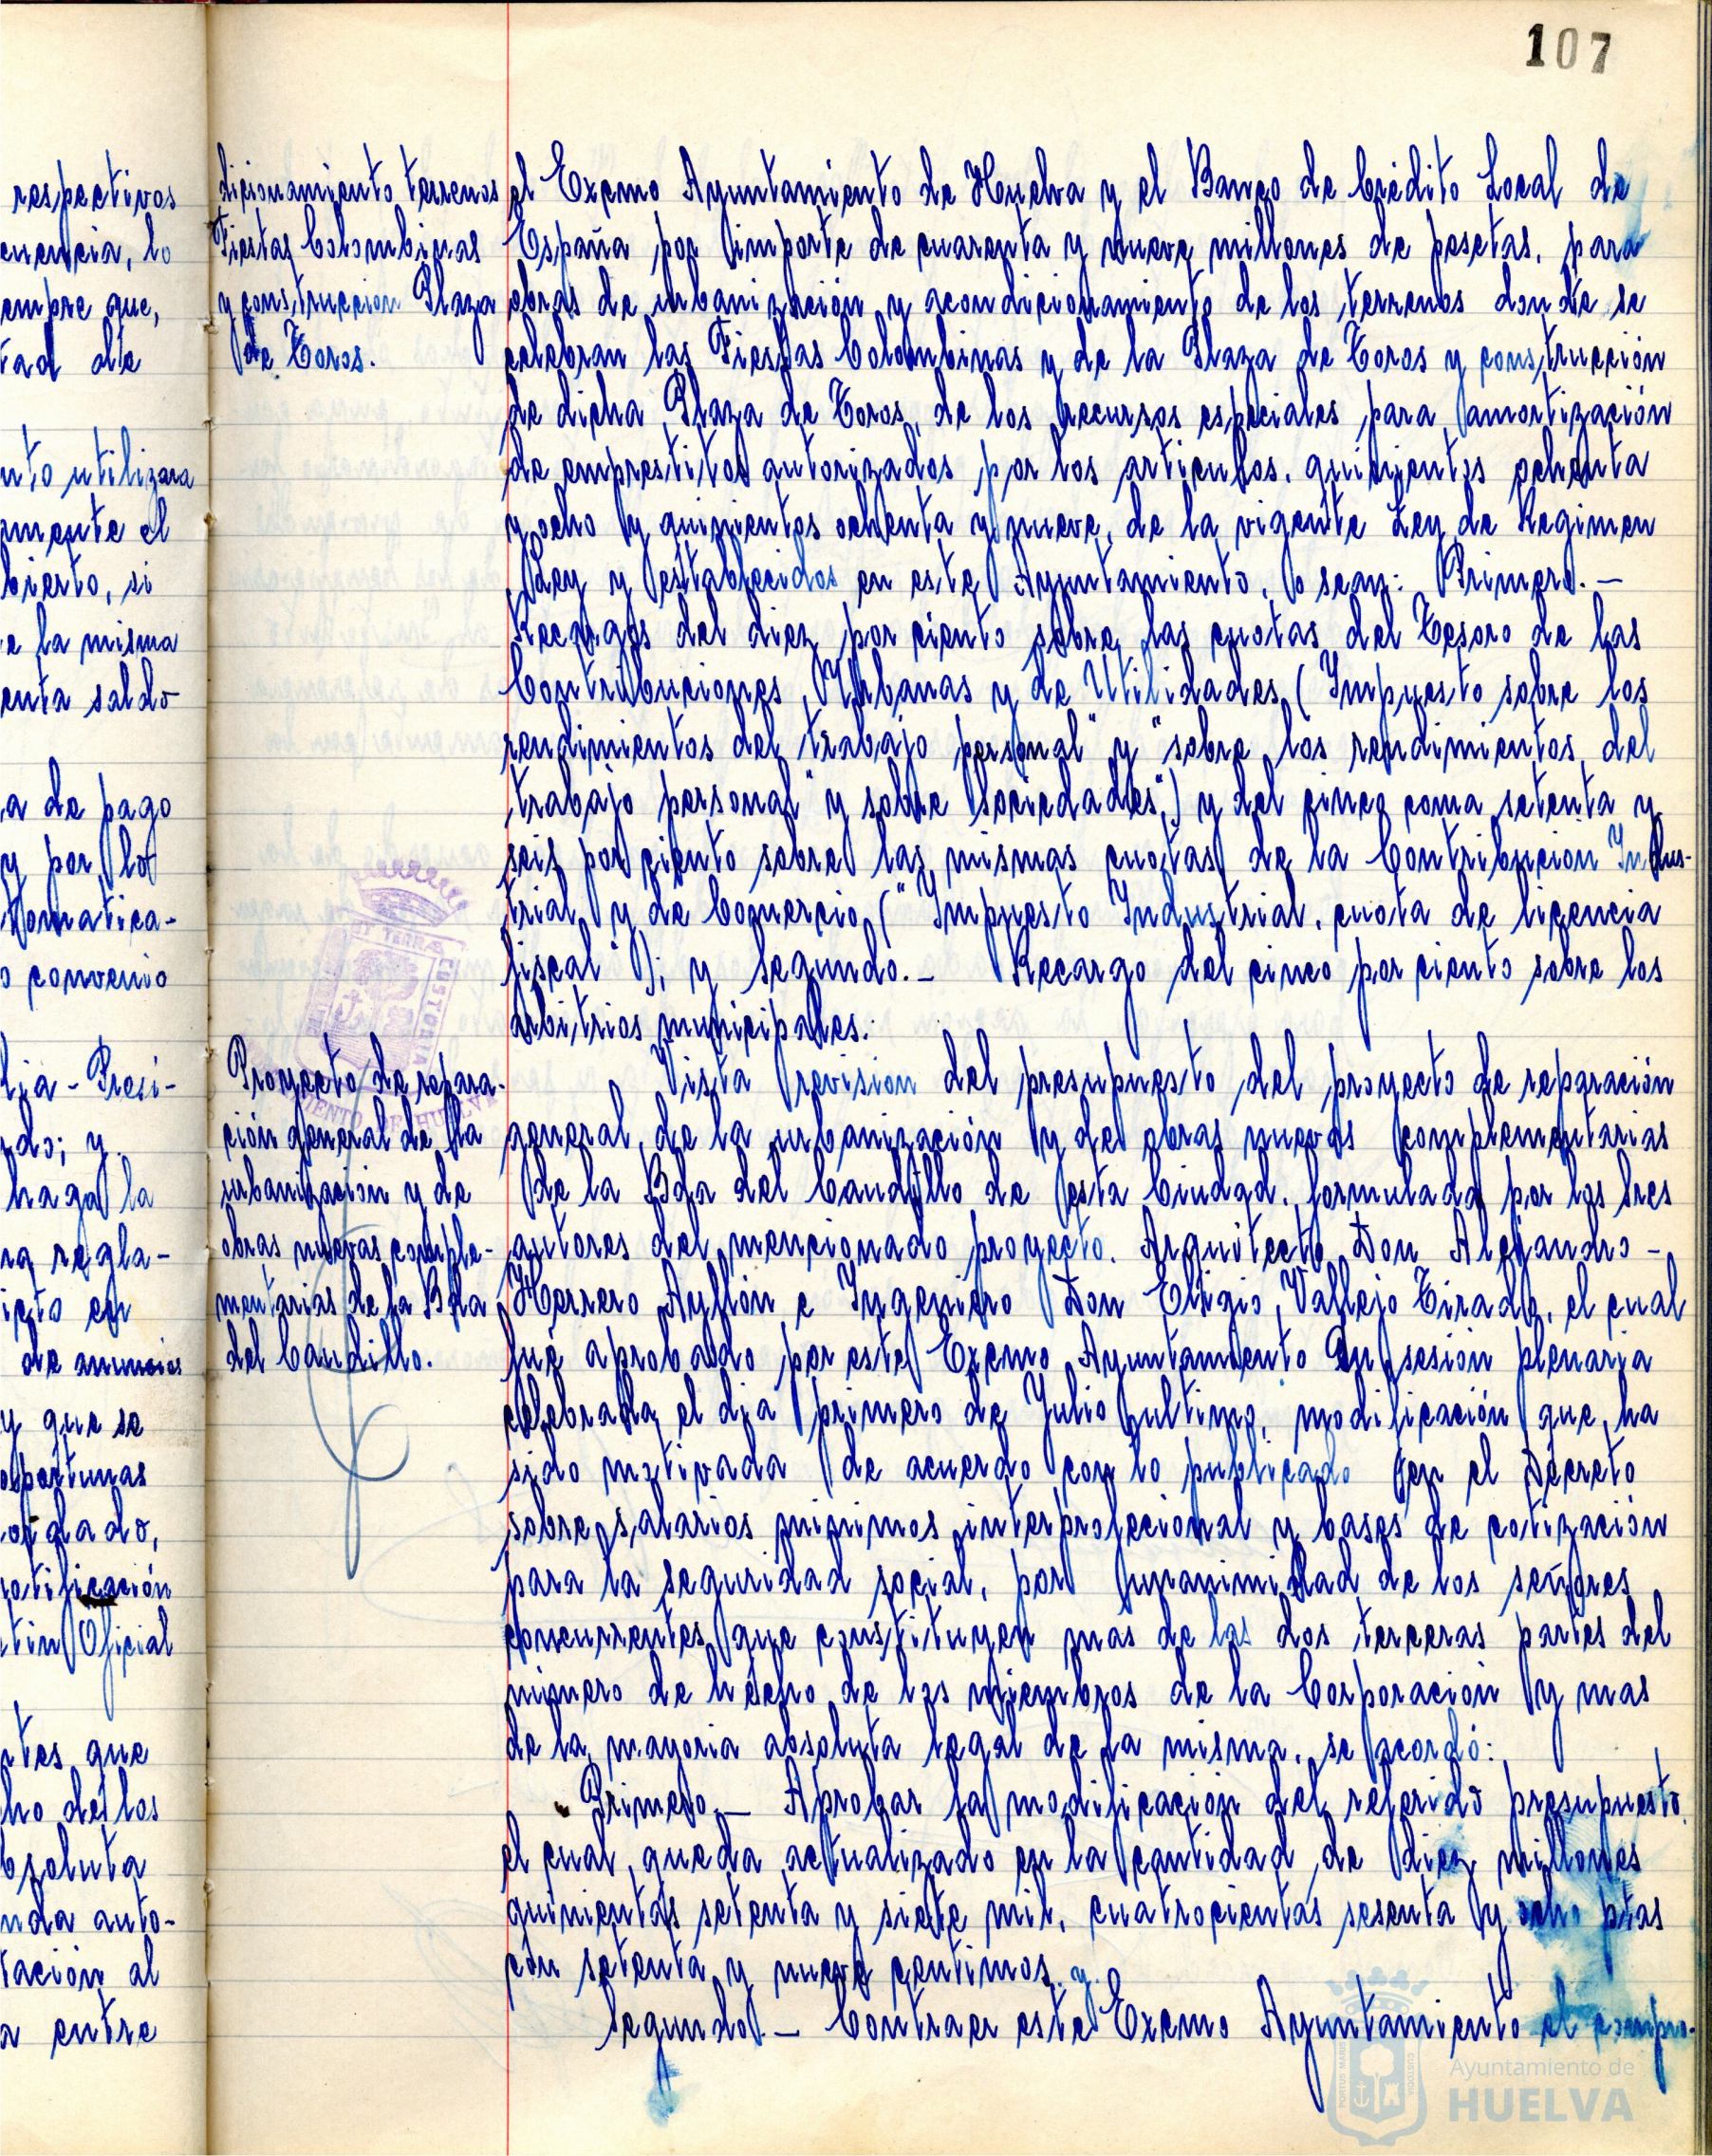 107
respectivos
uencia, lo
empre que,
tad de
nto utilizara
mente el
bierto, si
e la misma
enta saldo
a de pago
y por lo
tomatica-
o convenio
lia-Presi-
do; y
haga la
ra regla-
icto en
de anuncios
y que se
oportunas
ordado,
notificación
tin Oficial
ntes que
ho de los
bsoluta
nda auto-
tación al
a entre
dicionamiento terrenos
Fiestas Colombinas
y construccion Plaza
de Toros.
el Excmo Ayuntamiento de Huelva y el Banco de Crédito Local de
España por importe de cuarenta y nueve millones de pesetas, para
obras de urbanización y acondicionamiento de los terrenos donde se
celebran las Fiestas Colombinas y de la Plaza de Toros y construcción
de dicha Plaza de Toros, de los recursos especiales para amortización
de emprestitos autorizados por los articulos, quinientos ochenta
y ocho y quinientos ochenta y nueve, de la vigente Ley de Regimen
Ley y establecidos en este Ayuntamiento, o sean: Primero.—
Recargos del diez por ciento sobre las cuotas del Tesoro de las
Contribuciones Urbanas y de Utilidades (Impuesto sobre los
rendimientos del trabajo personal" y "sobre los rendimientos del
trabajo personal "y sobre Sociedades") y del cinco coma setenta y
seis por ciento sobre las mismas cuotas de la Contribucion Indus-
trial y de Comercio ("Impuesto Industrial, cuota de licencia
fiscal"); y Segundo.- Recargo del cinco por ciento sobre los
arbitrios municipales.
Proyecto de repara-
ción general de la
urbanización y de
obras nuevas comple-
mentarias de la Bda
del Caudillo.
Vista revision del presupuesto del proyecto de reparación
general de la urbanización y de obras nuevas complementarias
de la Bda del Caudillo de esta Ciudad, formulada por los Sres
autores del mencionado proyecto, Arquitecto Don Alejandro-
Herrero Ayllón e Ingeniero Don Eligio Vallejo Tirado, el cual
fué aprobado por este Excmo Ayuntamiento en sesión plenaria
celebrada el dia primero de Julio ultimo, modificación que ha
sido motivada de acuerdo con lo publicado en el Decreto
sobre salarios minimos interprofecional y bases de cotización
para la seguridad social, por unanimidad de los señores
concurrentes que constituyen mas de las dos terceras partes del
número de hecho de los miembros de la Corporación y mas
de la mayoria absoluta legal de la misma, se acordó:
Primero.— Aprobar la modificación del referido presupuesto,
el cual queda actualizado en la cantidad de diez millones
quinientas setenta y siete mil, cuatrocientas sesenta y ocho ptas
con setenta y nueve centimos, y.
Segundo.— Contraer este Excmo Ayuntamiento el compro-
Ayuntamiento de
HUELVA